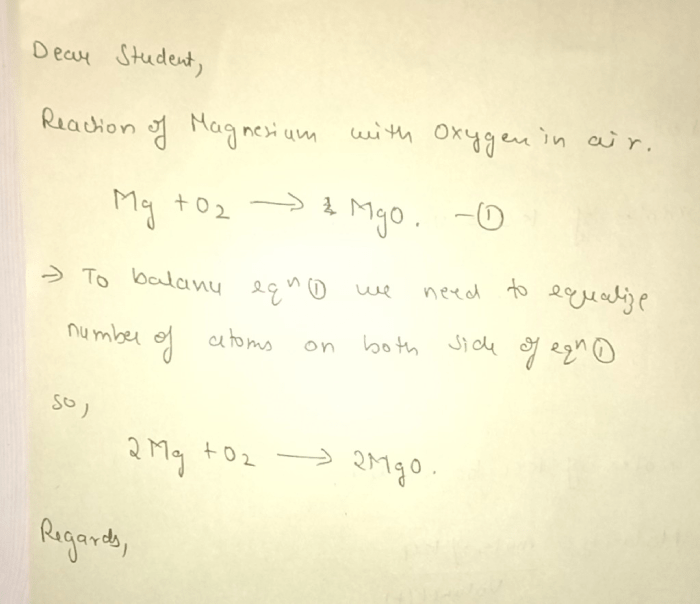 Dear Student,
Reaction of Magnesium with Oxygen in air.
Mg + O2 → MgO. -①
⇒ To balance eqn ① we need to equalize
number of atoms on both side of eqn ①
so,
2Mg + O2 → 2MgO.
Regards,